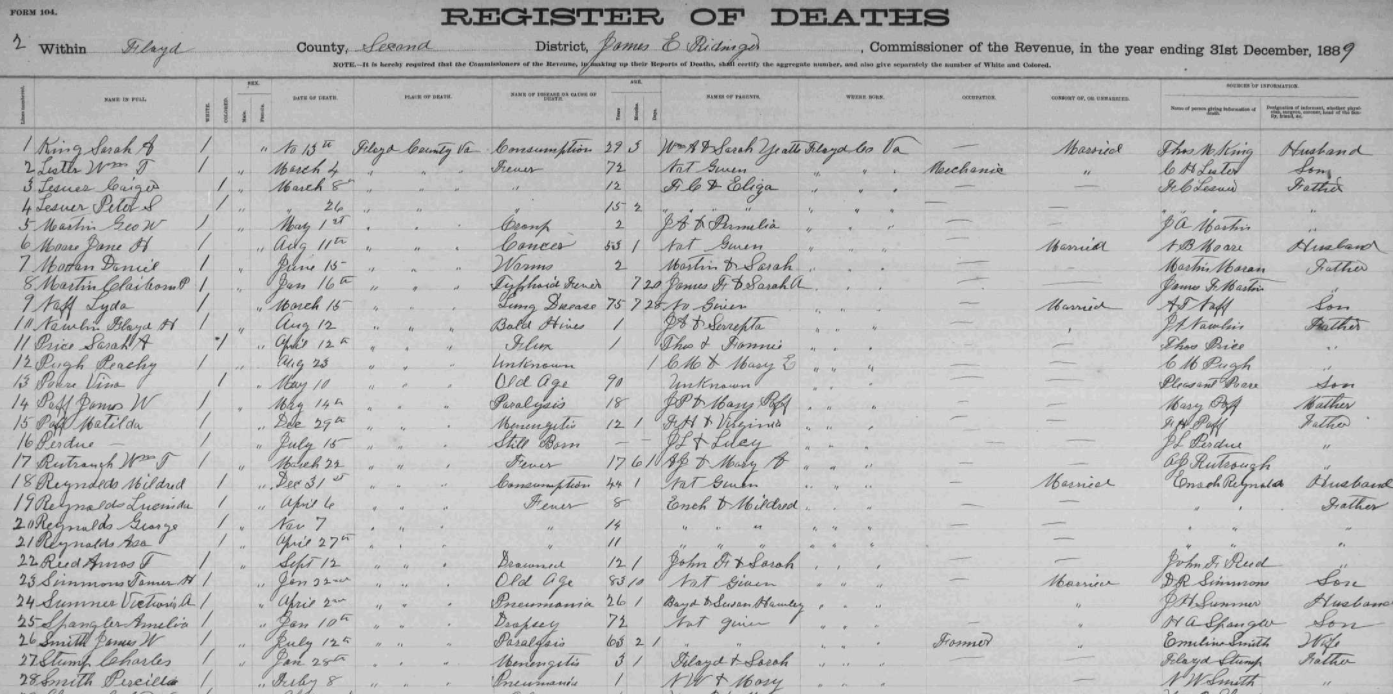 FORM 104.
REGISTER OF DEATHS
2 Within Floyd County, Second District, James E Ridinger, Commissioner of the Revenue, in the year ending 31st December, 1889
NOTE.—It is hereby required that the Commissioners of the Revenue, in making up their Reports of Deaths, shall certify the aggregate number, and also give separately the number of White and Colored.
SEX. AGE. SOURCES OF INFORMATION.
NAME IN FULL. WHITE. COLORED. Male. Female. DATE OF DEATH. PLACE OF DEATH. NAME OF DISEASE OR CAUSE OF DEATH. Years Months Days. NAMES OF PARENTS. WHERE BORN. OCCUPATION. CONSORT OF, OR UNMARRIED. Name of person giving information of death.
1 King Sarah A 1 " No 13th Floyd County Va Consumption 29 3 Wm A & Sarah Yeatts Floyd Co Va — Married Thos M King Husband
2 Lester Wm T 1 " March 4 " " " Fever 72 Not Given " " " Mechanic " C H Lester Son
3 Lesuer 1 " March 8th " " " " 12 F C & Eliza " " " — — F C Lesuer Father
4 Lesuer Peter S 1 " " 26 " " " " 15 2 " " " " " " — — " " "
5 Martin Geo W 1 " May 1st " " " Croup 2 J A & Permelia " " " — — J A Martin "
6 Moore Jane H 1 " Aug 11th " " " Cancer 53 1 Not Given " " " — Married N B Moore Husband
7 Moran Daniel 1 " June 15 " " " Worms 2 Martin & Sarah " " " — — Martin Moran Father
8 Martin Claiborn P 1 " Jan 16th " " " Typhoid Fever 7 20 James F & Sarah A " " " — — James F Martin "
9 Naff Lyda 1 " March 15 " " " Lung Disease 75 7 28 No Given " " " — Married A T Naff Son
10 Nawlin Floyd H 1 " Aug 12 " " " Bold Hives 1 J A & Serepta " " " — J A Nawlin Father
11 Price Sarah A 1 " April 12th " " " Flux 1 Thos & Fannie " " " — — Thos Price "
12 Pugh Peachy 1 " Aug 23 " " " Unknown 1 C M & Mary E " " " — — C M Pugh "
13 Poare Vina 1 " May 10 " " " Old Age 90 Unknown " " " — — Pleasant Poare Son
14 Poff James W 1 " May 14th " " " Paralysis 18 J P & Mary Poff " " " — — Mary Poff Mother
15 Poff Matilda 1 " Dec 29th " " " Menengetis 12 1 F H & Virginia " " " — — F H Poff Father
16 Perdue — 1 " July 15 " " " Still Born — — J L & Lucy " " " — — J L Perdue "
17 Rutrough Wm T 1 " March 22 " " " Fever 17 6 1 A J & Mary A " " " — — A J Rutrough "
18 Reynolds Mildred 1 " Dec 31st " " " Consumption 44 1 Not Given " " " — Married Enoch Reynolds Husband
19 Reynolds Lucinda 1 " April 6 " " " Fever 8 Enoh & Mildred " " " — — " " Father
20 Reynolds George 1 " Nov 7 " " " " 14 " " " " " " — — " " "
21 Reynolds Asa 1 " April 27th " " " " 11 " " " " " " — — " " "
22 Reed Amos T 1 " Sept 12 " " " Drowned 12 1 John F & Sarah " " " — — John F Reed "
23 Simmons Tamer H 1 " Jan 22nd " " " Old Age 83 10 Not Given " " " — Married D R Simmons Son
24 Sumner Victoria A 1 " April 2nd " " " Pneumania 26 1 Boyd & Susan " " " — " J H Sumner Husband
25 Spangler Amelia 1 " Jan 10th " " " Dropsey 72 Not given " " " — " H A Spangler Son
26 Smith James W 1 " July 12th " " " Paralysis 63 2 1 " " " " " Farmer " Emeline Smith Wife
27 Stump Charles 1 " Jan 28th " " " Menengetis 3 1 Floyd & Sarah " " " — — Floyd Stump Father
28 Smith Percilla 1 " Feby 8 " " " Pneumania 1 N W & Mary " " " — — N W Smith "